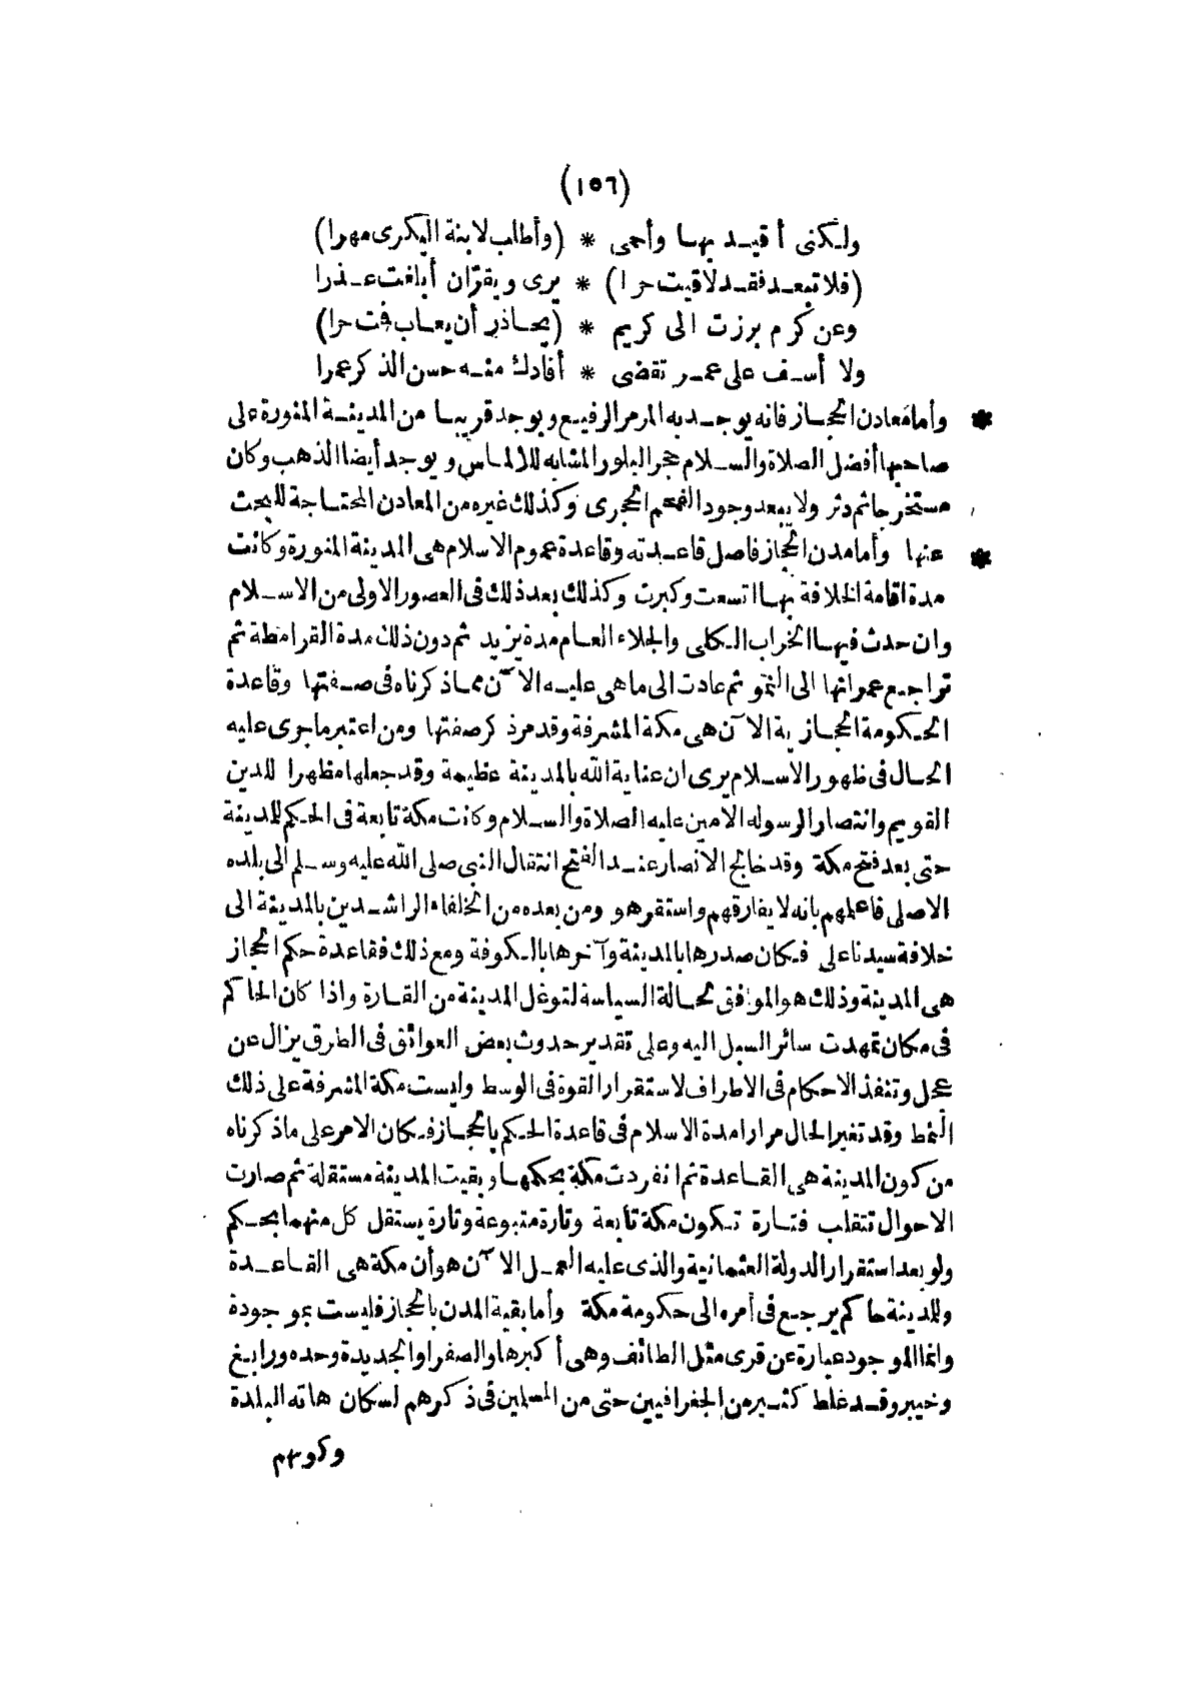 (١٥٦)
ولكنى أقيد بها وأحمى * (وأطلب لابنة البكرى مهرا)
(فلا تبعد فقد لاقيت حرا) * يرى ويقر ان أبلغت عذرا
وعن كرم برزت الى كريم * (يحاذر أن يعاب فت حرا)
ولا أسف على عمر تقضى * أفادك منه حسن الذكر عمرا
* وأما معادن الحجاز فانه يوجد به المرمر الرفيع ويوجد قريبا من المدينة المنورة على
صاحبها أفضل الصلاة والسلام حجر البلور المشابه للالماس ويوجد أيضا الذهب وكان
مستخرجا ثم دثر ولا يبعد وجود الفحم الحجرى وكذلك غيره من المعادن المحتاجة للبحث
* عنها وأما مدن الحجاز فاصل قاعدته وقاعدة عموم الاسلام هى المدينة المنورة وكانت
مدة اقامة الخلافة بها اتسعت وكبرت وكذلك بعد ذلك فى العصور الاولى من الاسلام
وان حدث فيها الخراب الكلى والجلاء العام مدة يزيد ثم دون ذلك مدة القرامطة ثم
تراجع عمرانها الى النمو ثم عادت الى ما هى عليه الآن مماذكرناه فى صفتها وقاعدة
الحكومة الحجازية الآن هى مكة المشرفة وقد مر ذكر صفتها ومن اعتبر ماجرى عليه
الحال فى ظهور الاسلام يرى ان عناية الله بالمدينة عظيمة وقد جعلها مظهرا للدين
القويم وانتصار الرسوله الامين عليه الصلاة والسلام وكانت مكة تابعة فى الحكم للمدينة
حتى بعد فتح مكة وقد خالج الانصار عند الفتح انتقال النبى صلى الله عليه وسلم الى بلده
الاصلى فاعلمهم بانه لا يفارقهم واستقر هو ومن بعده من الخلفاء الراشدين بالمدينة الى
خلافة سيدنا على فكان صدرها بالمدينة وآخرها بالكوفة ومع ذلك فقاعدة حكم الحجاز
هى المدينة وذلك هو الموافق لحالة السياسة لتوغل المدينة من القارة واذا كان الحاكم
فى مكان تمهدت سائر السبل اليه وعلى تقدير حدوث بعض العوائق فى الطرق يزال عن
عجل وتنفذ الاحكام فى الاطراف لاستقرار القوة فى الوسط وليست مكة المشرفة على ذلك
النمط وقد تغير الحال مرارا مدة الاسلام فى قاعدة الحكم بالحجاز فكان الامر على ماذكرناه
من كون المدينة هى القاعدة ثم انفردت مكة بحكمها وبقيت المدينة مستقلة ثم صارت
الاحوال تتقلب فتارة تكون مكة تابعة وتارة متبوعة وتارة يستقل كل منهما بحكم
ولو بعد استقرار الدولة العثمانية والذى عليه العمل الآن هو أن مكة هى القاعدة
وللمدينة حاكم يرجع فى أمره الى حكومة مكة وأما بقية المدن بالحجاز فليست بموجودة
وانما الموجود عبارة عن قرى مثل الطائف وهى أكبرها والصفرا والجديدة وحده ورابغ
وخيبر وقد غلط كثير من الجغرافيين حتى من المسلمين فى ذكرهم لسكان هاته البلدة
وكونهم